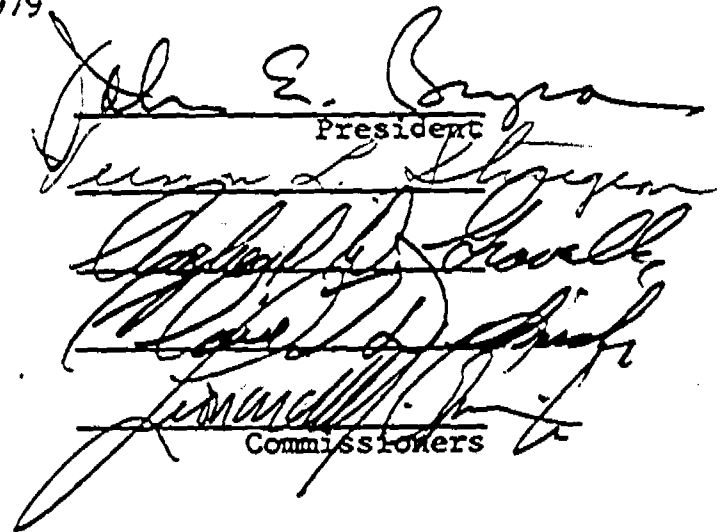 979
John E. Bryson
President
Vernon L. Sturgeon
Richard D. Gravelle
Claire T. Dedrick
Leonard M. Grimes
Commissioners